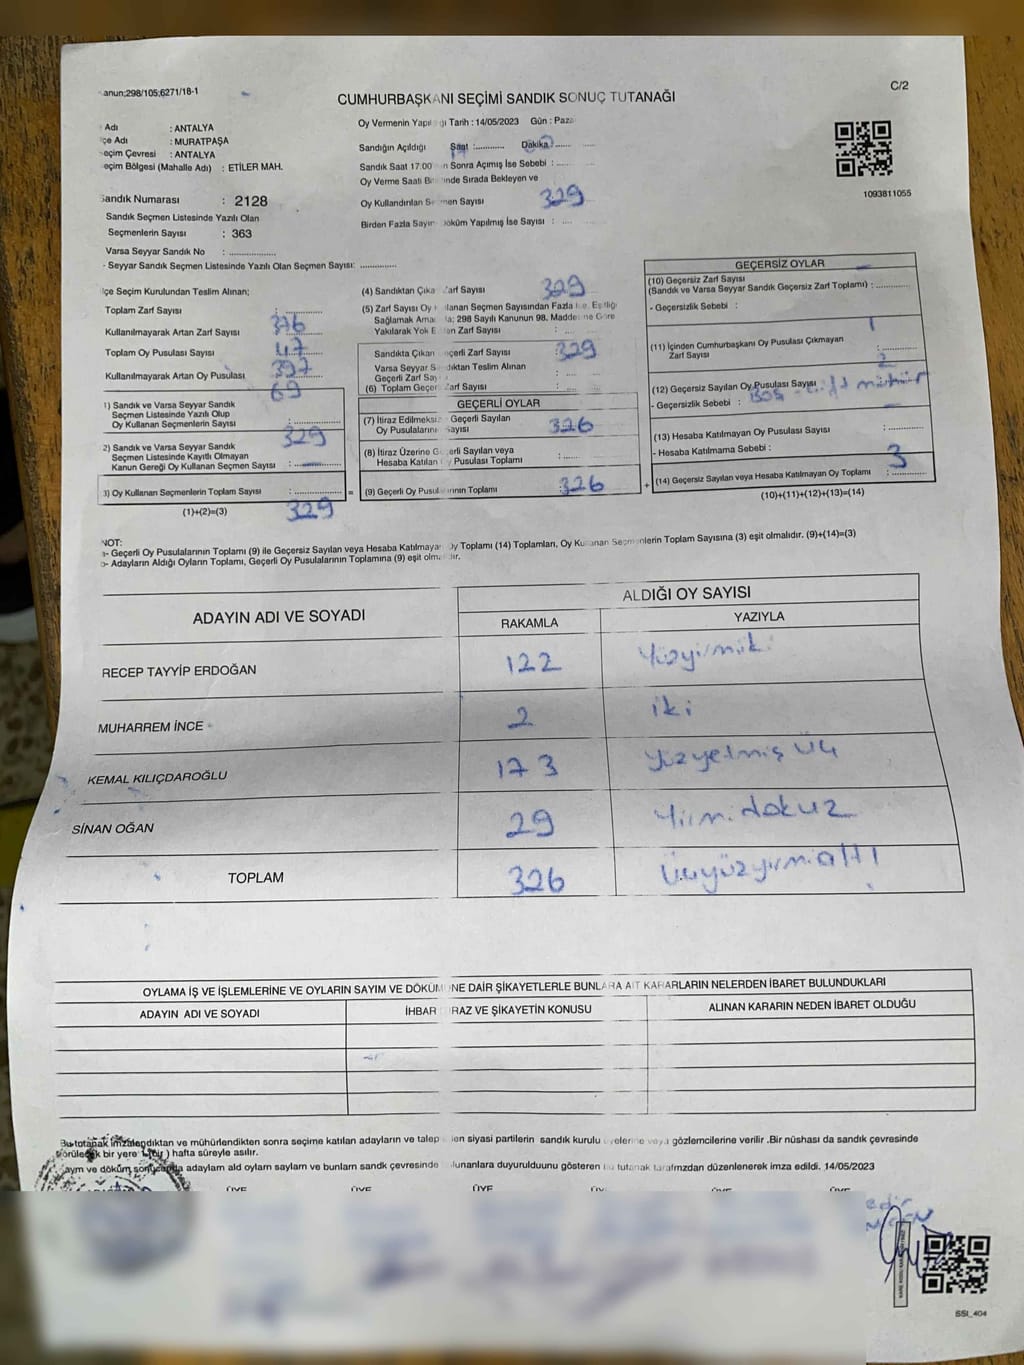 anun;298/105;6271/18-1
C/2
CUMHURBAŞKANI SEÇİMİ SANDIK SONUÇ TUTANAĞI
Adı : ANTALYA
çe Adı : MURATPAŞA
eçim Çevresi : ANTALYA
eçim Bölgesi (Mahalle Adı) : ETİLER MAH.
Sandık Numarası : 2128
Sandık Seçmen Listesinde Yazılı Olan
Seçmenlerin Sayısı : 363
Varsa Seyyar Sandık No :
- Seyyar Sandık Seçmen Listesinde Yazılı Olan Seçmen Sayısı:
Oy Vermenin Yapıl ğı Tarih : 14/05/2023 Gün : Paza
Sandığın Açıldığı Saat : Dakika :
Sandık Saat 17:00 n Sonra Açımış İse Sebebi :
Oy Verme Saati Bi inde Sırada Bekleyen ve
Oy Kullandırılan Se men Sayısı 329
Birden Fazla Sayım Döküm Yapılmış İse Sayısı :
1093811055
lçe Seçim Kurulundan Teslim Alınan;
Toplam Zarf Sayısı : 376
Kullanılmayarak Artan Zarf Sayısı : 47
Toplam Oy Pusulası Sayısı : 397
Kullanılmayarak Artan Oy Pusulası : 69
1) Sandık ve Varsa Seyyar Sandık
Seçmen Listesinde Yazılı Olup
Oy Kullanan Seçmenlerin Sayısı : 329
2) Sandık ve Varsa Seyyar Sandık
Seçmen Listesinde Kayıtlı Olmayan
Kanun Gereği Oy Kullanan Seçmen Sayısı : —
3) Oy Kullanan Seçmenlerin Toplam Sayısı : 329
(1)+(2)=(3)
(4) Sandıktan Çıka Zarf Sayısı 329
(5) Zarf Sayısı Oy K lanan Seçmen Sayısından Fazla İse, Eşitliği
Sağlamak Ama la; 298 Sayılı Kanunun 98. Maddesine Göre
Yakılarak Yok E en Zarf Sayısı :
Sandıkta Çıkan eçerli Zarf Sayısı 329
Varsa Seyyar S dıktan Teslim Alınan
Geçerli Zarf Say :
(6) Toplam Geçer Zarf Sayısı :
GEÇERLİ OYLAR
(7) İtiraz Edilmeksiz Geçerli Sayılan
Oy Pusulaların ayısı 326
(8) İtiraz Üzerine Ge erli Sayılan veya
Hesaba Katılan y Pusulası Toplamı :
(9) Geçerli Oy Pusul rının Toplamı : 326
=
+
GEÇERSİZ OYLAR
(10) Geçersiz Zarf Sayısı
(Sandık ve Varsa Seyyar Sandık Geçersiz Zarf Toplamı) : —
- Geçersizlik Sebebi :
(11) İçinden Cumhurbaşkanı Oy Pusulası Çıkmayan
Zarf Sayısı : 1
(12) Geçersiz Sayılan Oy Pusulası Sayısı : 2
- Geçersizlik Sebebi : Boş - çift mühür
(13) Hesaba Katılmayan Oy Pusulası Sayısı :
- Hesaba Katılmama Sebebi :
(14) Geçersiz Sayılan veya Hesaba Katılmayan Oy Toplamı : 3
(10)+(11)+(12)+(13)=(14)
NOT:
a- Geçerli Oy Pusulalarının Toplamı (9) ile Geçersiz Sayılan veya Hesaba Katılmayan Oy Toplamı (14) Toplamları, Oy Kullanan Seçmenlerin Toplam Sayısına (3) eşit olmalıdır. (9)+(14)=(3)
b- Adayların Aldığı Oyların Toplamı, Geçerli Oy Pusulalarının Toplamına (9) eşit olmalıdır.
ADAYIN ADI VE SOYADI
ALDIĞI OY SAYISI
RAKAMLA YAZIYLA
RECEP TAYYİP ERDOĞAN 122 Yüzyirmiiki
MUHARREM İNCE 2 iki
KEMAL KILIÇDAROĞLU 173 Yüzyetmiş üç
SİNAN OĞAN 29 Yirmidokuz
TOPLAM 326 Üçyüzyirmialtı
OYLAMA İŞ VE İŞLEMLERİNE VE OYLARIN SAYIM VE DÖKÜMÜNE DAİR ŞİKAYETLERLE BUNLARA AİT KARARLARIN NELERDEN İBARET BULUNDUKLARI
ADAYIN ADI VE SOYADI İHBAR RAZ VE ŞİKAYETİN KONUSU ALINAN KARARIN NEDEN İBARET OLDUĞU
Bu tutanak imzalandıktan ve mühürlendikten sonra seçime katılan adayların ve talep eden siyasi partilerin sandık kurulu üyelerine veya gözlemcilerine verilir .Bir nüshası da sandık çevresinde
görülecek bir yere 1 (bir) hafta süreyle asılır.
ayım ve döküm sonucunda adayların ald oyların sayılarını ve bunların sandk çevresinde ulunanlara duyurulduunu gösteren bu tutanak tarafmzdan düzenlenerek imza edildi. 14/05/2023
ÜYE ÜYE ÜYE
SSI_404